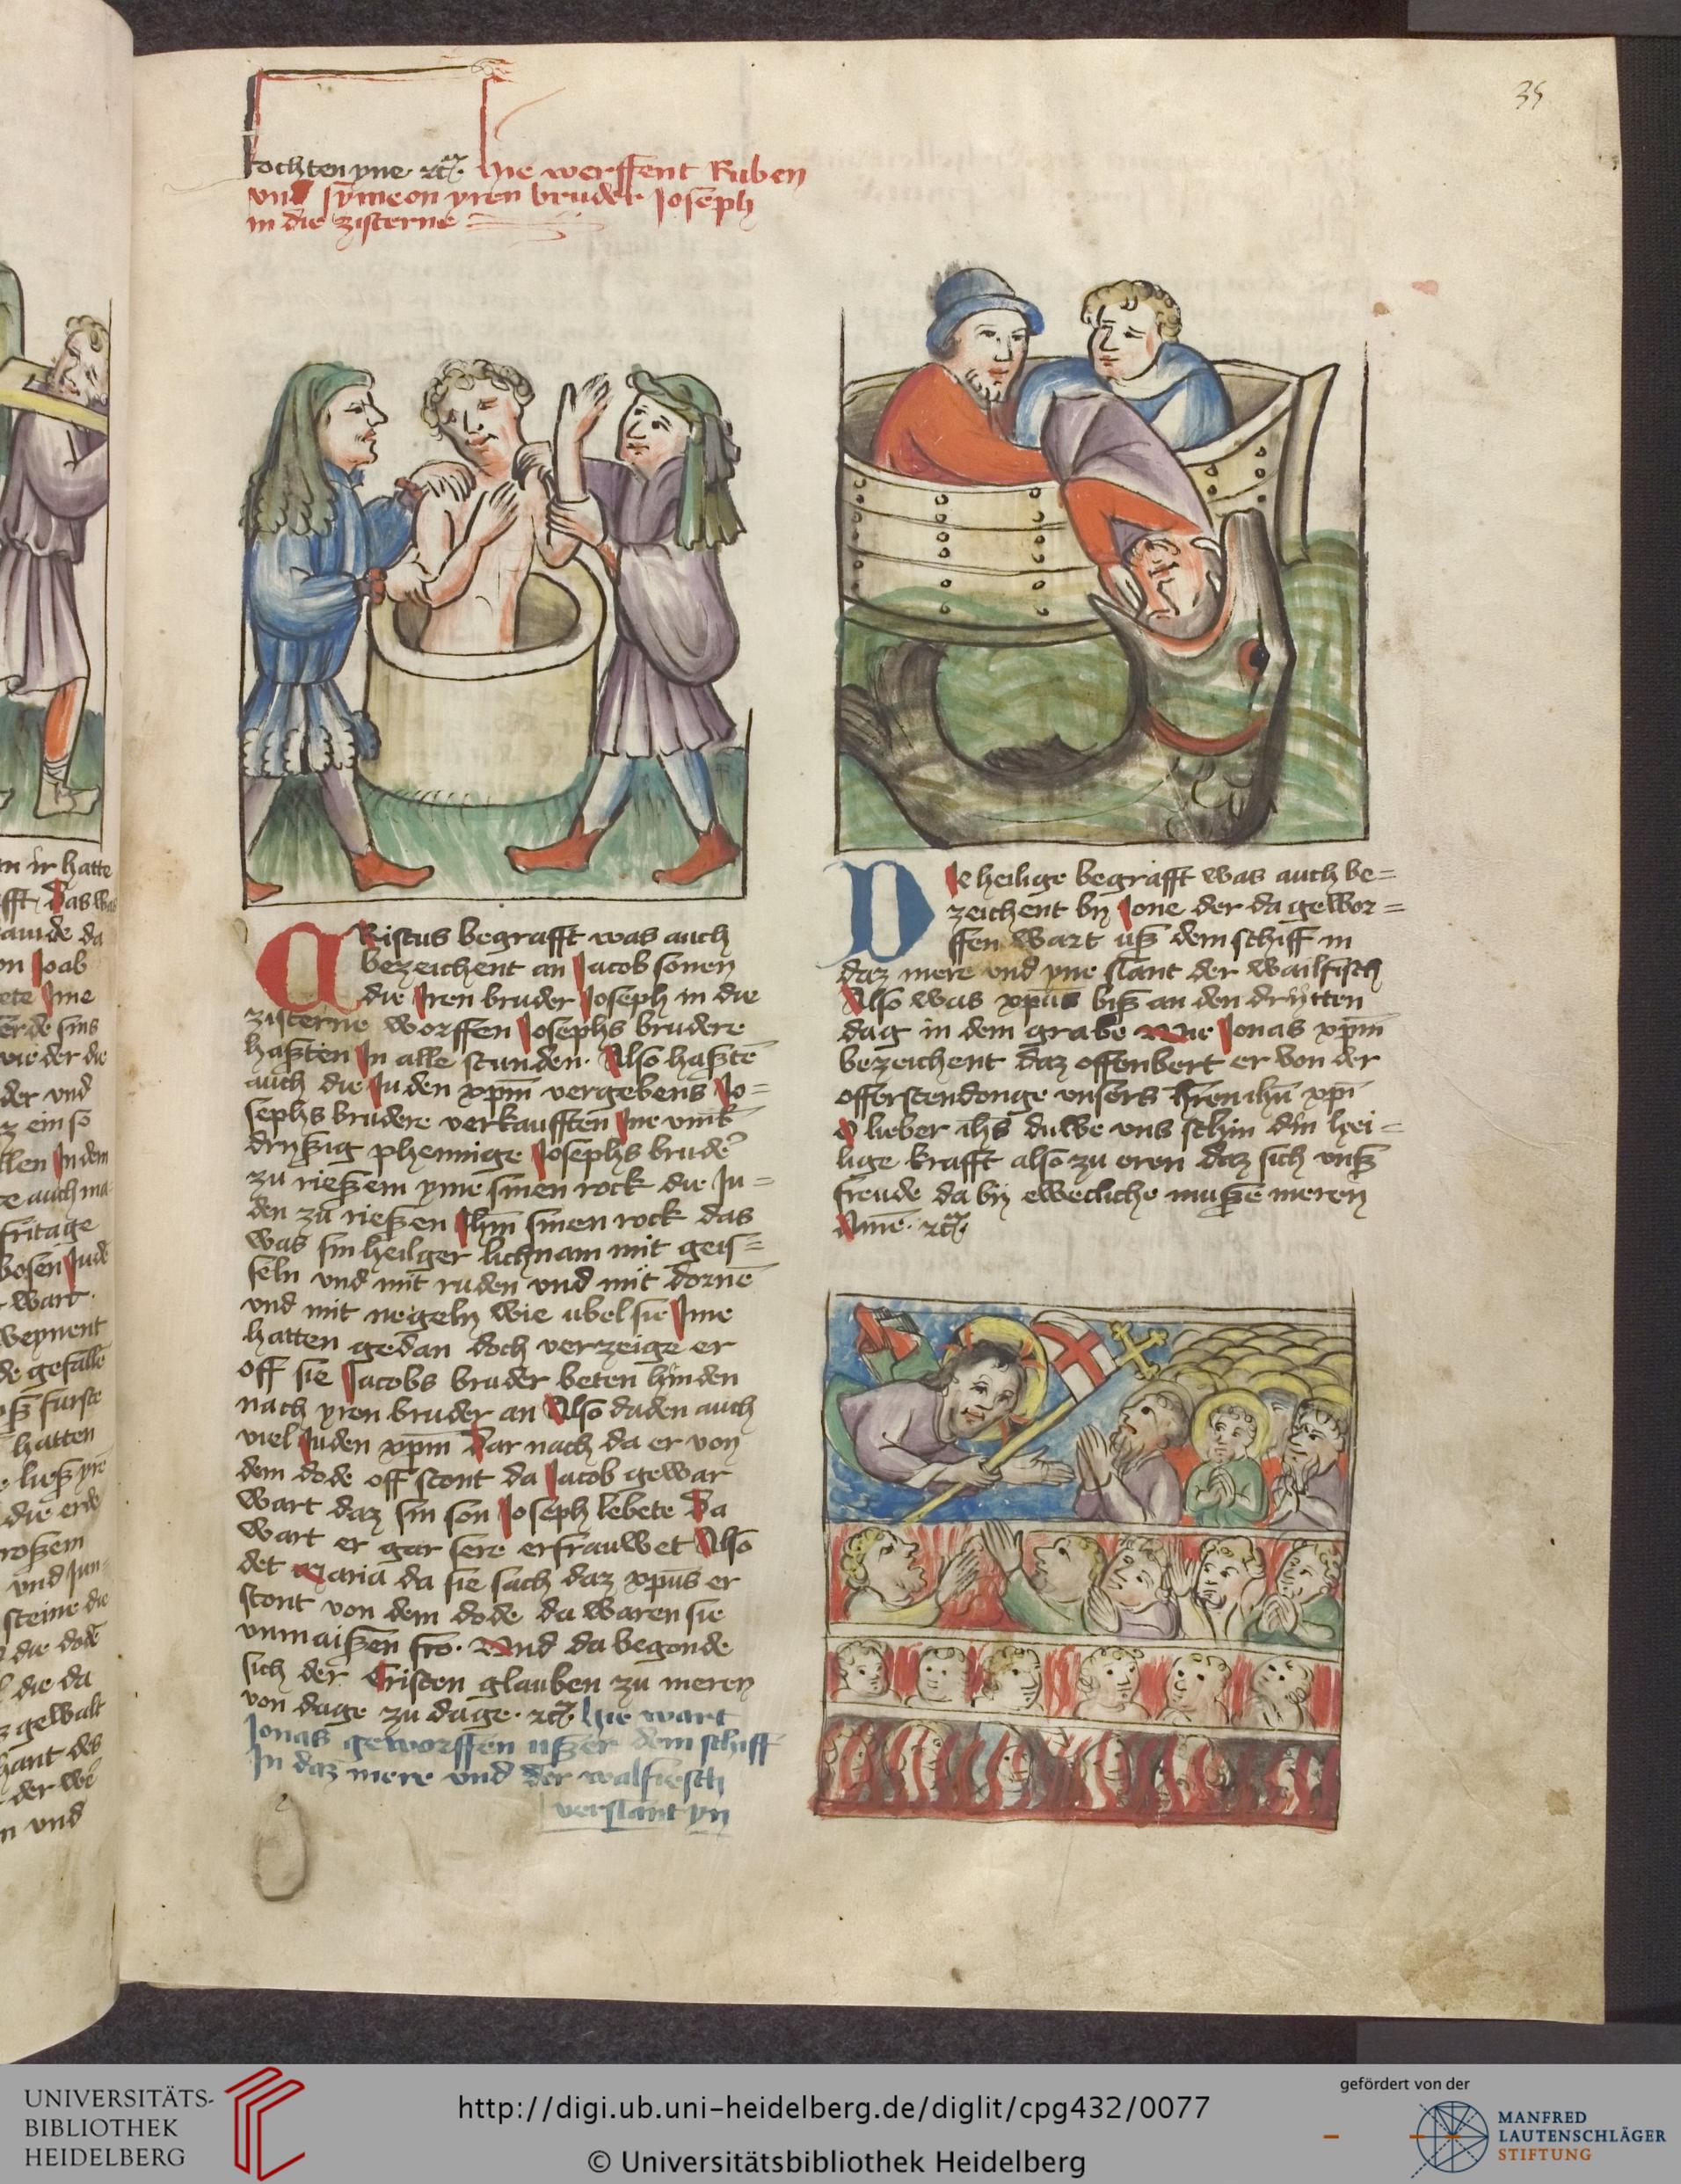 35
fochten yne ⁊cꝫ. Hie werffent Ruben
vnd symeon yren bruder Joseph
in die zisterne
CRistus begrafft was auch
bezeichent an Jacob sonen
die Jren bruder Joseph in die
zisterne worffen Josephs brudere
haßten Jn alle stunden. Also haßtē
auch die Juden xpm̄ vergebens Jo=
sephs brudere verkaufften Jne vmb
dryßig phennige Josephs brudeꝰ
zu rießem yme sinen rock die Ju=
den zu rießen Jhm̄ sinen rock das
was sin heilger lichnam mit geis=
seln vnd mit ruden vnd mit dornē
vnd mit negeln wie ubel sie Jme
hatten gedan doch verzeige er
off sie Jacobs bruder beten hinden
nach yren bruder an Also daden auch
viel Juden xpm̄ Dar nach da er von
dem dode off stont da Jacob gewar
wart daz sin son Joseph lebete Da
wart er gar sere erfrauwet Also
det Maria da sie sach daz xpūs er
stont von dem dode da waren sie
vnmaißen fro. Vnd da begonde
sich der Cristen glauben zu meren
von dage zu dage. ⁊cꝫ. Hie wart
Jonas geworffen ußer dem schiff
Jn daz mere vnd der walfiesch
verslant yn
DJe heilige begrafft was auch be=
zeichent by Jone der da gewor=
ffen wart uß dem schiff in
daz mere vnd yne slant der wailfisch
Also was xpūs biß an den drytten
dag in dem grabe Wie Jonas xpm̄
bezeichent daz offenbert er von der
offerstendonge vnsers hren ihū xpī
O lieber ihs̄ du we vns schin din hei=
lige krafft also zu eren daz sich vnß
freude da by ewecliche mußē meren
Amē. ⁊cꝫ.
en ir hatte
fft. Das was
on Joab
ete Jme
erde sins
wieder die
der vnd
z ein so
llen Jn dem
e auch ma
fritage
bosen Jude
wart.
weynent
de gefalle
ß furste
hatten
ließ yre
die erde
roßem
vnd Jun=
steine die
die dode
die da
z gewalt
hant des
der we
n vnd
UNIVERSITÄTS-
BIBLIOTHEK
HEIDELBERG
http://digi.ub.uni-heidelberg.de/diglit/cpg432/0077
© Universitätsbibliothek Heidelberg
gefördert von der
MANFRED
LAUTENSCHLÄGER
STIFTUNG